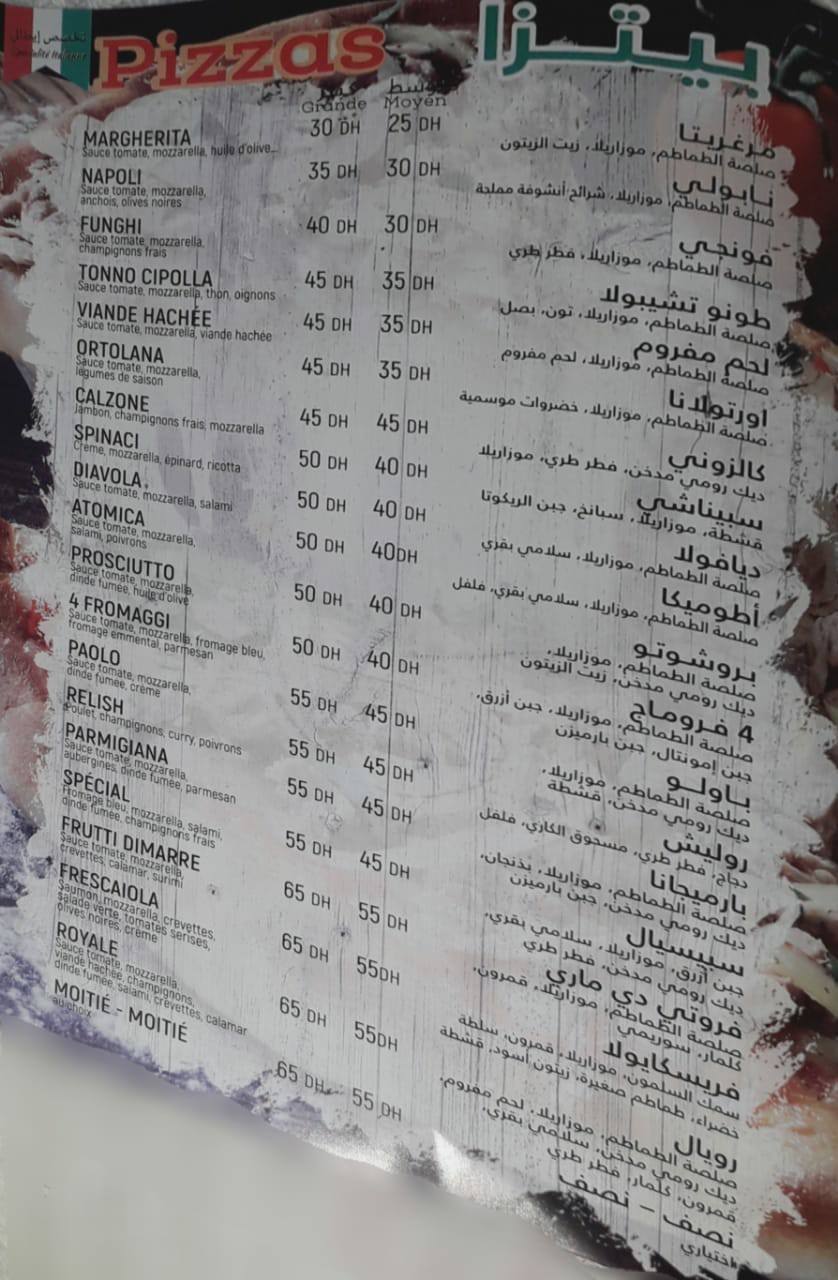 تخصص إيطالي
Spécialité Italienne
Pizzas
بيتزا
كبير وسط
Grande Moyen
MARGHERITA 30 DH 25 DH مرغريتا
Sauce tomate, mozzarella, huile d'olive... صلصة الطماطم، موزاريلا، زيت الزيتون
NAPOLI 35 DH 30 DH نابولي
Sauce tomate, mozzarella, صلصة الطماطم، موزاريلا، شرائح أنشوفة مملحة
anchois, olives noires
FUNGHI 40 DH 30 DH فونجي
Sauce tomate, mozzarella, صلصة الطماطم، موزاريلا، فطر طري
champignons frais
TONNO CIPOLLA 45 DH 35 DH طونو تشيبولا
Sauce tomate, mozzarella, thon, oignons صلصة الطماطم، موزاريلا، تون، بصل
VIANDE HACHÉE 45 DH 35 DH لحم مفروم
Sauce tomate, mozzarella, viande hachée صلصة الطماطم، موزاريلا، لحم مفروم
ORTOLANA 45 DH 35 DH اورتولانا
Sauce tomate, mozzarella, صلصة الطماطم، موزاريلا، خضروات موسمية
légumes de saison
CALZONE 45 DH 45 DH كالزوني
Jambon, champignons frais, mozzarella ديك رومي مدخن، فطر طري، موزاريلا
SPINACI 50 DH 40 DH سبيناشي
Crème, mozzarella, épinard, ricotta قشطة، موزاريلا، سبانخ، جبن الريكوتا
DIAVOLA 50 DH 40 DH ديافولا
Sauce tomate, mozzarella, salami صلصة الطماطم، موزاريلا، سلامي بقري
ATOMICA 50 DH 40DH أطوميكا
Sauce tomate, mozzarella, صلصة الطماطم، موزاريلا، سلامي بقري، فلفل
salami, poivrons
PROSCIUTTO 50 DH 40 DH بروشوتو
Sauce tomate, mozzarella, صلصة الطماطم، موزاريلا،
dinde fumée, huile d'olive ديك رومي مدخن، زيت الزيتون
4 FROMAGGI 50 DH 40 DH 4 فروماج
Sauce tomate, mozzarella, fromage bleu, صلصة الطماطم، موزاريلا، جبن أزرق،
fromage emmental, parmesan جبن إمونتال، جبن بارميزن
PAOLO 55 DH 45 DH باولو
Sauce tomate, mozzarella, صلصة الطماطم، موزاريلا،
dinde fumée, crème ديك رومي مدخن، قشطة
RELISH 55 DH 45 DH روليش
Poulet, champignons, curry, poivrons دجاج، فطر طري، مسحوق الكاري، فلفل
PARMIGIANA 55 DH 45 DH بارميجانا
Sauce tomate, mozzarella, صلصة الطماطم، موزاريلا، بذنجان،
aubergines, dinde fumée, parmesan ديك رومي مدخن، جبن بارميزن
SPÉCIAL 55 DH 45 DH سبيسيال
Fromage bleu, mozzarella, salami, جبن أزرق، موزاريلا، سلامي بقري،
dinde fumée, champignons frais ديك رومي مدخن، فطر طري
FRUTTI DIMARRE 65 DH 55 DH فروتي دي ماري
Sauce tomate, mozzarella, صلصة الطماطم، موزاريلا، قمرون،
crevettes, calamar, surimi كلمار، سوريمي
FRESCAIOLA 65 DH 55DH فريسكايولا
Saumon, mozzarella, crevettes, سمك السلمون، موزاريلا، قمرون، سلطة
salade verte, tomates serises, خضراء، طماطم صغيرة، زيتون أسود، قشطة
olives noires, crème
ROYALE 65 DH 55DH رويال
Sauce tomate, mozzarella, صلصة الطماطم، موزاريلا، لحم مفروم،
viande hachée, champignons, ديك رومي مدخن، سلامي بقري،
dinde fumée, salami, crevettes, calamar قمرون، كلمار، فطر طري
MOITIÉ - MOITIÉ 65 DH 55 DH نصف - نصف
au choix اختياري